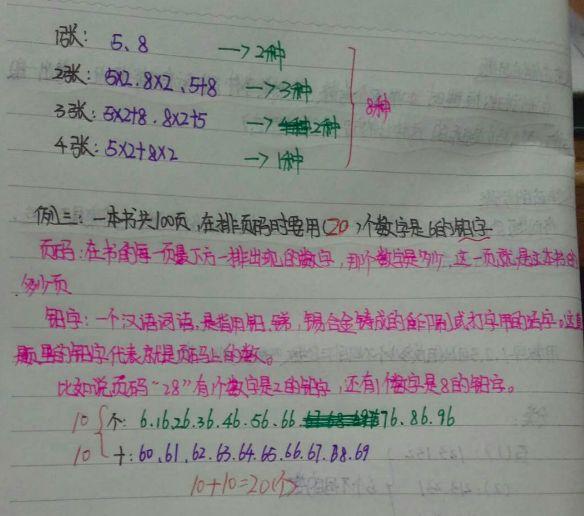 1张: 5、8 → 2种
2张: 5×2、8×2、5+8 → 3种
3张: 5×2+8、8×2+5 → 2种
4张: 5×2+8×2 → 1种
8种
例三: 一本书共100页,在排页码时要用(20)个数字是6的铅字
页码:在书的每一页最下方一排出现的数字,那个数字是多少,这一页就是这本书的
多少页
铅字:一个汉语词语,是指用铅、锑,锡合金铸成的印刷或打字用的活字。这道
题里的铅字代表就是页码上的数。
比如说页码“28”有1个数字是2的铅字,还有1个数字是8的铅字。
10 个: 6.16.26.36.46.56.66.76.86.96
10 十: 60.61.62.63.64.65.66.67.68.69
10+10=20(个)